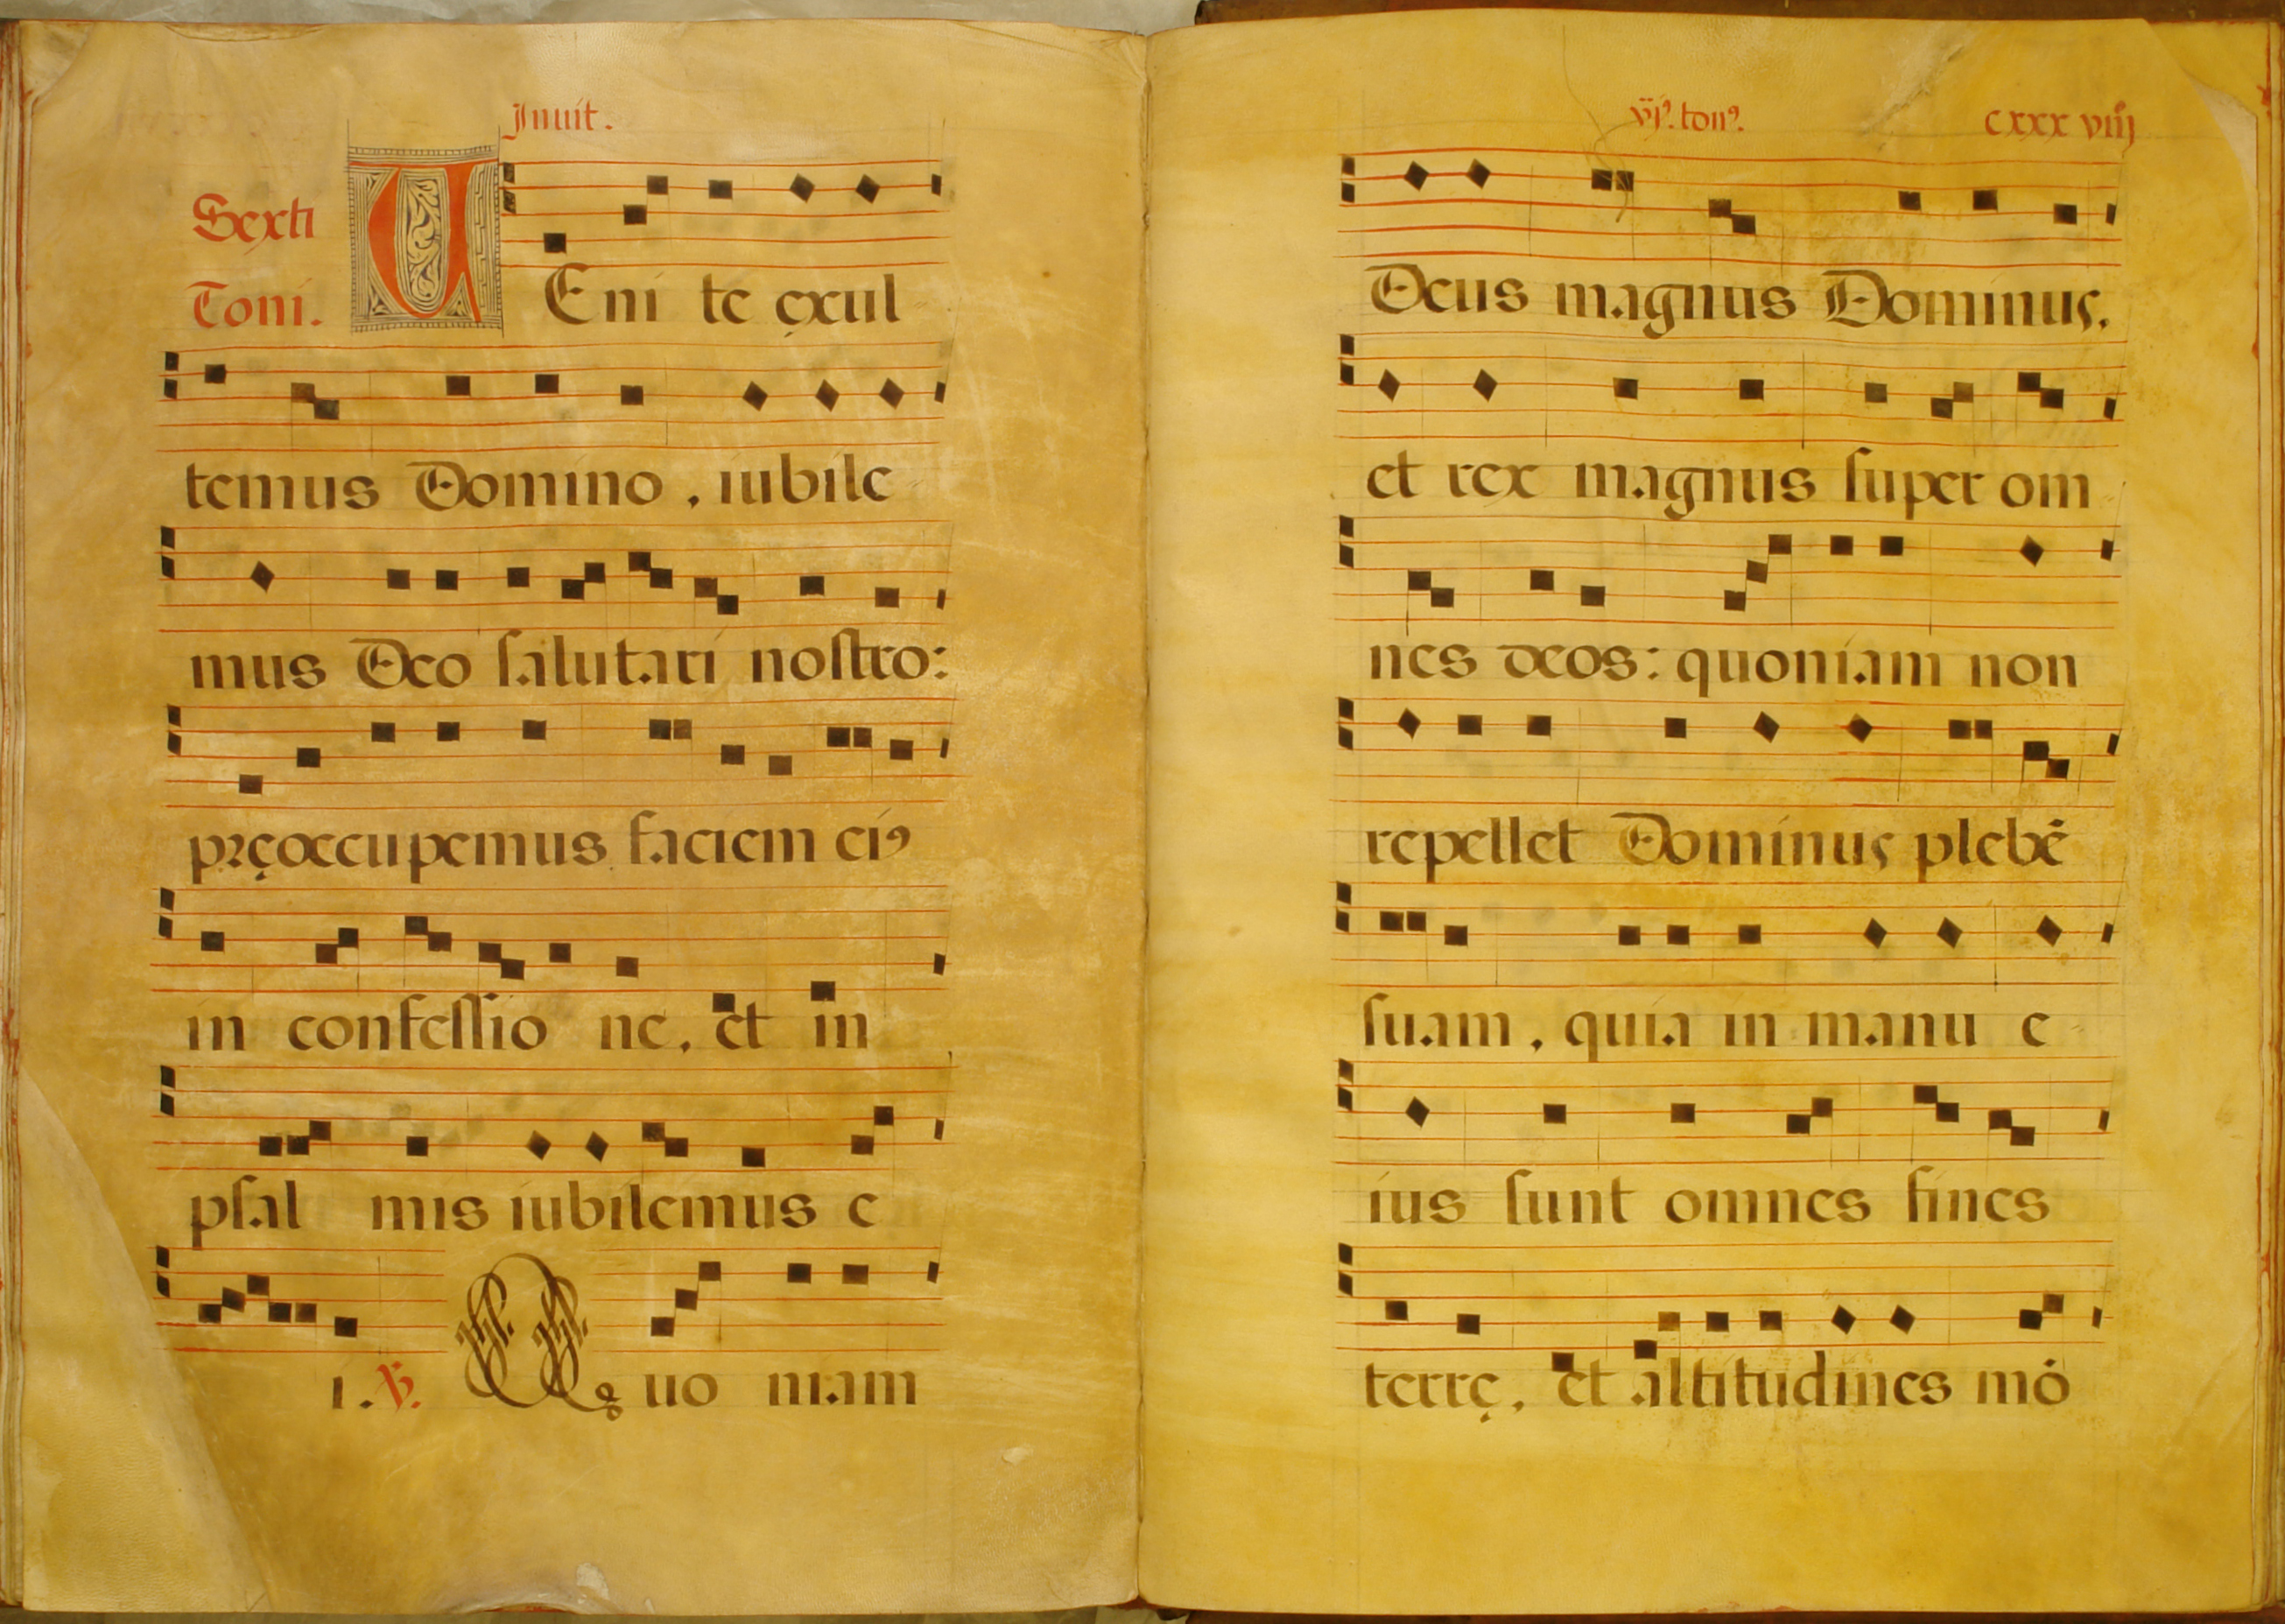 Inuit.
Sexti
Toni.
UEni te ęxul
temus Domino, iubile
mus Deo ſalutari noſtro:
pręoccupemus faciem eiꝰ
in confeſſio ne, et in
pſal mis iubilemus e
i. ℟. Quo niam
vjꝰ. tonꝰ. cxxx viiij
Deus magnus Dominus,
et rex magnus ſuper om
nes deos: quoniam non
repellet Dominus plebē
ſuam, quia in manu e
ius ſunt omnes fines
terrę, et altitudines mō